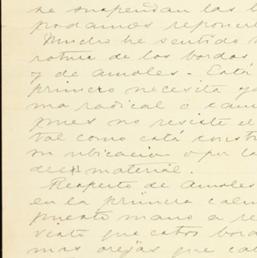 se suspendan las l
podamos reponer
Mucho he sentido
rotura de los bordos
y de Amoles. Este
primero necesita
ma radical o cam
pues no resiste el
tal como está const
su ubicacion o por la
del material.
Respecto de Amoles
en la primera
puesto mano a re
viste que estos bord
mas orejas que